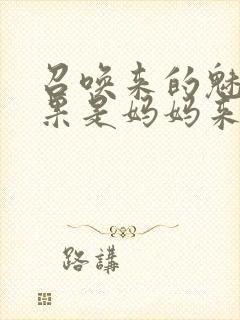 召唤来的魅
果是妈妈来
路講